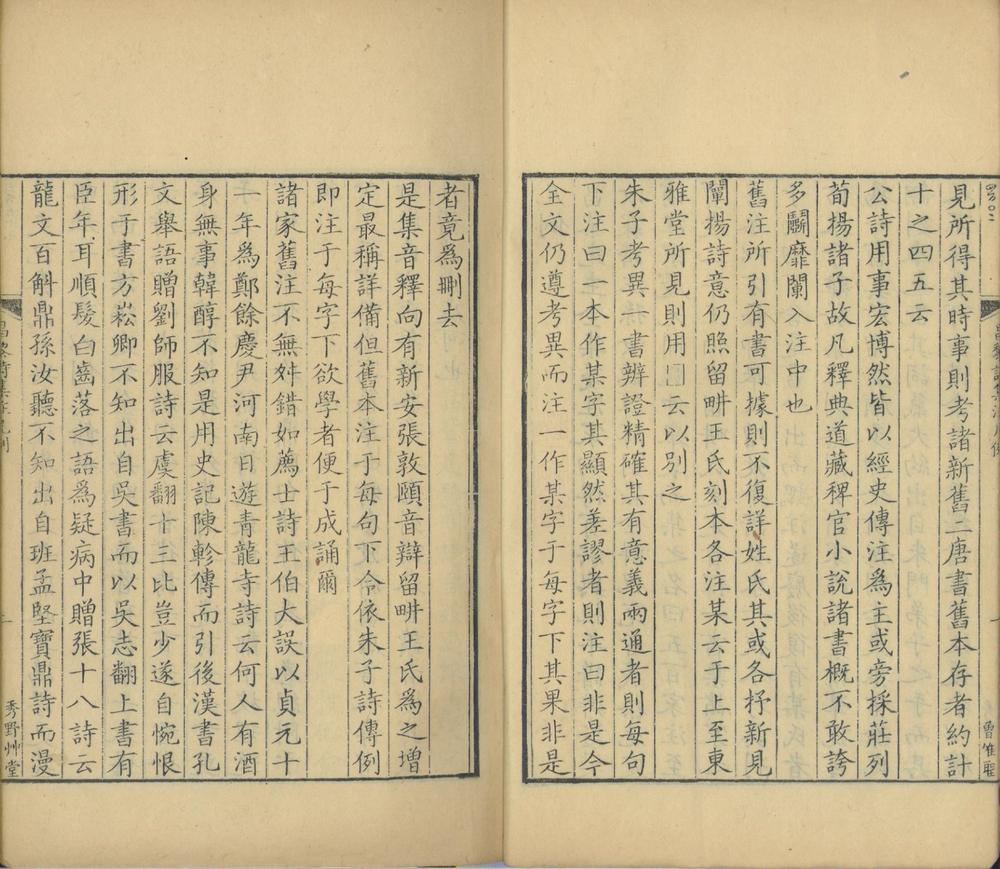 見所得其時事則考諸新舊二唐書舊本存者約計
十之四五云
公詩用事宏博然皆以經史傳注為主或旁採莊列
荀揚諸子故凡釋典道藏稗官小說諸書概不敢誇
多鬭靡闌入注中也
舊注所引有書可據則不復詳姓氏其或各抒新見
闡揚詩意仍照留畊王氏刻本各注某云于上至東
雅堂所見則用云以別之
朱子考異一書辨證精確其有意義兩通者則每句
下注曰一本作某字其顯然差謬者則注曰非是今
全文仍遵考異而注一作某字于每字下其果非是
曾惟聖
者竟為刪去
是集音釋向有新安張敦頤音辯留畊王氏為之增
定最稱詳備但舊本注于每句下今依朱子詩傳例
即注于每字下欲學者便于成誦爾
諸家舊注不無舛錯如薦士詩王伯大誤以貞元十
一年為鄭餘慶尹河南日遊青龍寺詩云何人有酒
身無事韓醇不知是用史記陳軫傳而引後漢書孔
文舉語贈劉師服詩云虞翻十三比豈少遂自惋恨
形于書方崧卿不知出自吳書而以吳志翻上書有
臣年耳順髮白齒落之語為疑病中贈張十八詩云
龍文百斛鼎孫汝聽不知出自班孟堅寶鼎詩而漫
昌黎詩集注凡例
二
秀野艸堂